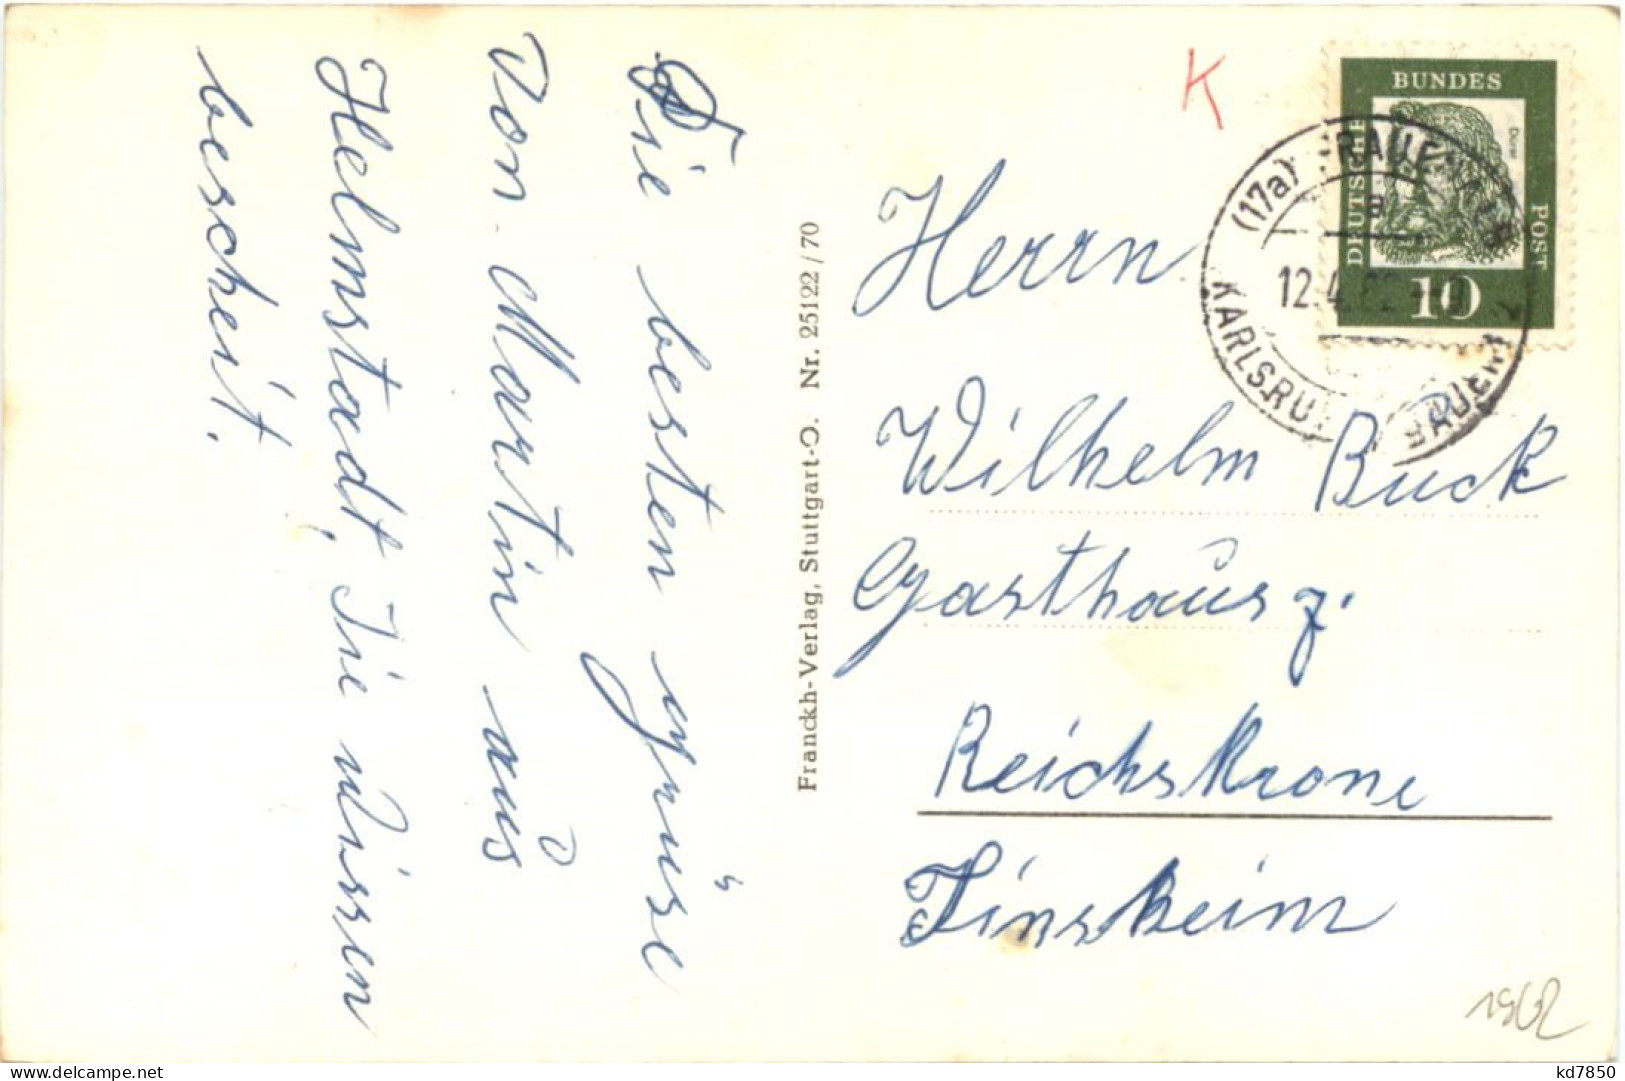 Die besten grüse
Von Martin aus
Helmstadt, Sie wissen
bescheit.
Franckh-Verlag, Stuttgart-O. Nr. 25122/70
K
BUNDES
DEUTSCHE
POST
Dürer
10
(17a)
12.4.
KARLSRU
Herrn
Wilhelm Buck
Gasthaus z.
Reichskrone
Sinsheim
1962
www.delcampe.net
kd7850